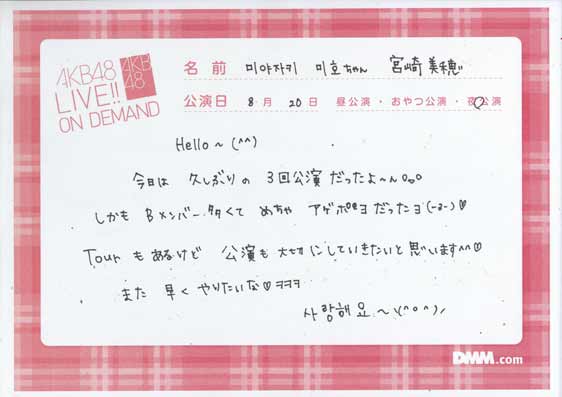 AKB48
LIVE!!
ON DEMAND
AKB
48
名前 미야자키 미호ちゃん 宮崎美穂
公演日 8月 20日 昼公演・おやつ公演・夜公演
Hello～(^^)
今日は 久しぶりの 3回公演だったよ～ん。。。
しかも Bメンバー多くて めちゃ アゲポヨだったヨ(-3-)♡
Tourもあるけど 公演も大切にしていきたいと思います^^♡
また 早く やりたいな♡ ㅋㅋㅋ
사랑해요～\(^o^)/
DMM.com